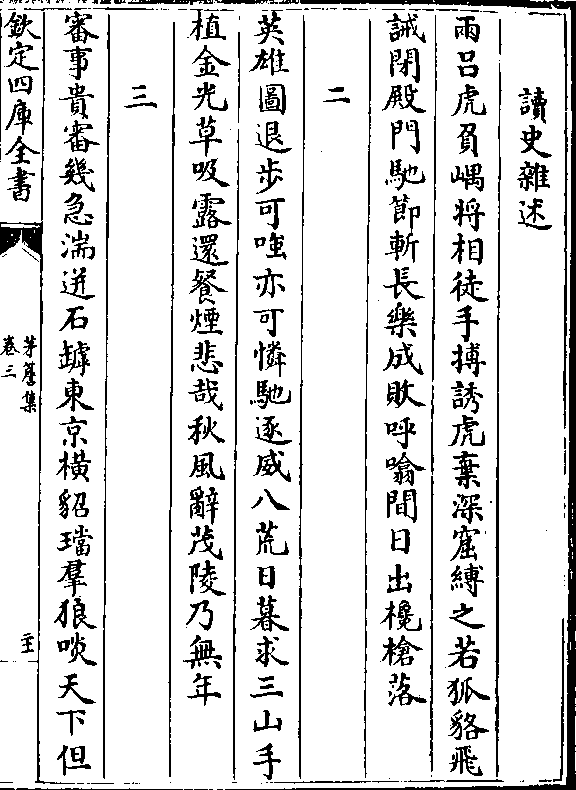 讀史雜述
兩呂虎負嵎将相徒手搏誘虎棄深窟縛之若狐貉飛
誡閉殿門馳節斬長樂成敗呼噏間日出欃槍落
二
英雄圖退步可嗤亦可憐馳逐威八荒日暮求三山手
植金光草吸露還餐煙悲哉秋風辭茂陵乃無年
三
審事貴審幾急湍迸石罅東京橫貂璫羣狼啖天下但
欽定四庫全書
茅簷集
卷三